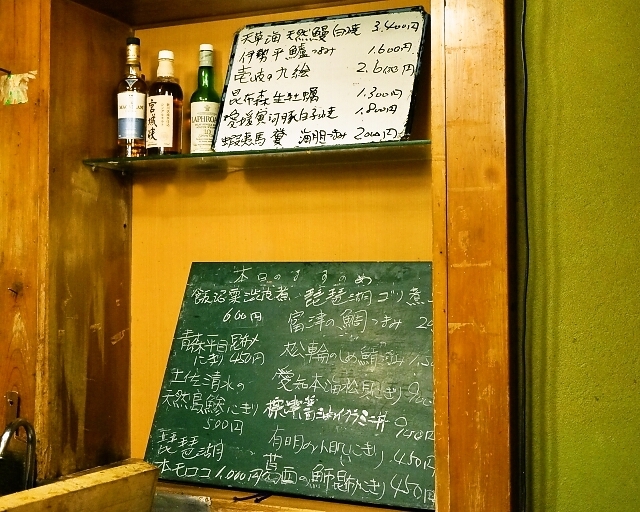 MACALLAN
宮城峡
LAPHROAIG
天草海 天然鰻白焼 3.400円
伊勢平鱸つまみ 1.600円
壱岐の九絵 2.600円
昆布森生牡蠣 1.300円
愛媛寅河豚白子焼 1.800円
蝦夷馬糞海胆つまみ 2000円
本日のすすめ
飯沼栗渋皮煮
600円
青森平目昆〆
にぎり 450円
土佐清水の
天然島鯵にぎり
500円
琵琶湖
本モロコ 1.000円
琵琶湖ゴリ煮
富津の鯛つまみ
松輪の〆鯖つまみ
愛知本海松貝にぎり
標津 イクラミニ丼
有明の小肌にぎり 450円
葛西の鰤昆布にぎり 450円